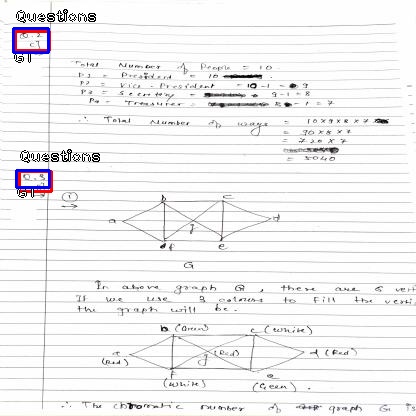 Questions
Q.2
c]
GT
Total Number of People = 10.
P1 = President = 10
P2 = Vice-President = 10-1 = 9
P3 = Secretary = 9-1 = 8
P4 = Treasurer = 8-1 = 7
∴ Total Number of ways = 10x9x8x7
= 90x8x7
= 720x7
= 5040
Questions
Q.3
GT
①
b c
a g d
f e
G
In above graph G, there are 6
If we use 3 colours to fill the
the graph will be.
b (Green) c (White)
(Red) g (Red) d (Red)
f e
(White) (Green).
∴ The chromatic number of graph G is